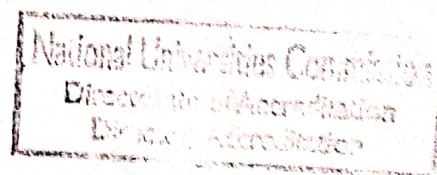 National Universities Commission
Directorate of Accreditation
Accreditation